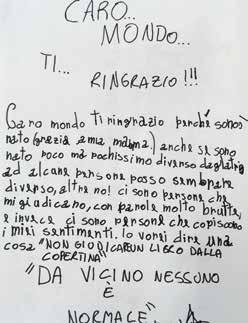 CARO...
MONDO...
TI...
RINGRAZIO!!!
Caro mondo ti ringrazio perché sono
nato (grazia a mia mamma) anche se sono
nato poco ma pochissimo diverso dagl'altri
ad alcune persone posso sembrare
diverso, altre no! ci sono persone che
mi giudicano, con parole molto brutte
e invece ci sono persone che capiscono
i miei sentimenti. Io vorei dire una
cosa "NON GIUDICARE UN LIBRO DALLA
COPERTINA"
"DA VICINO NESSUNO
È
NORMALE"